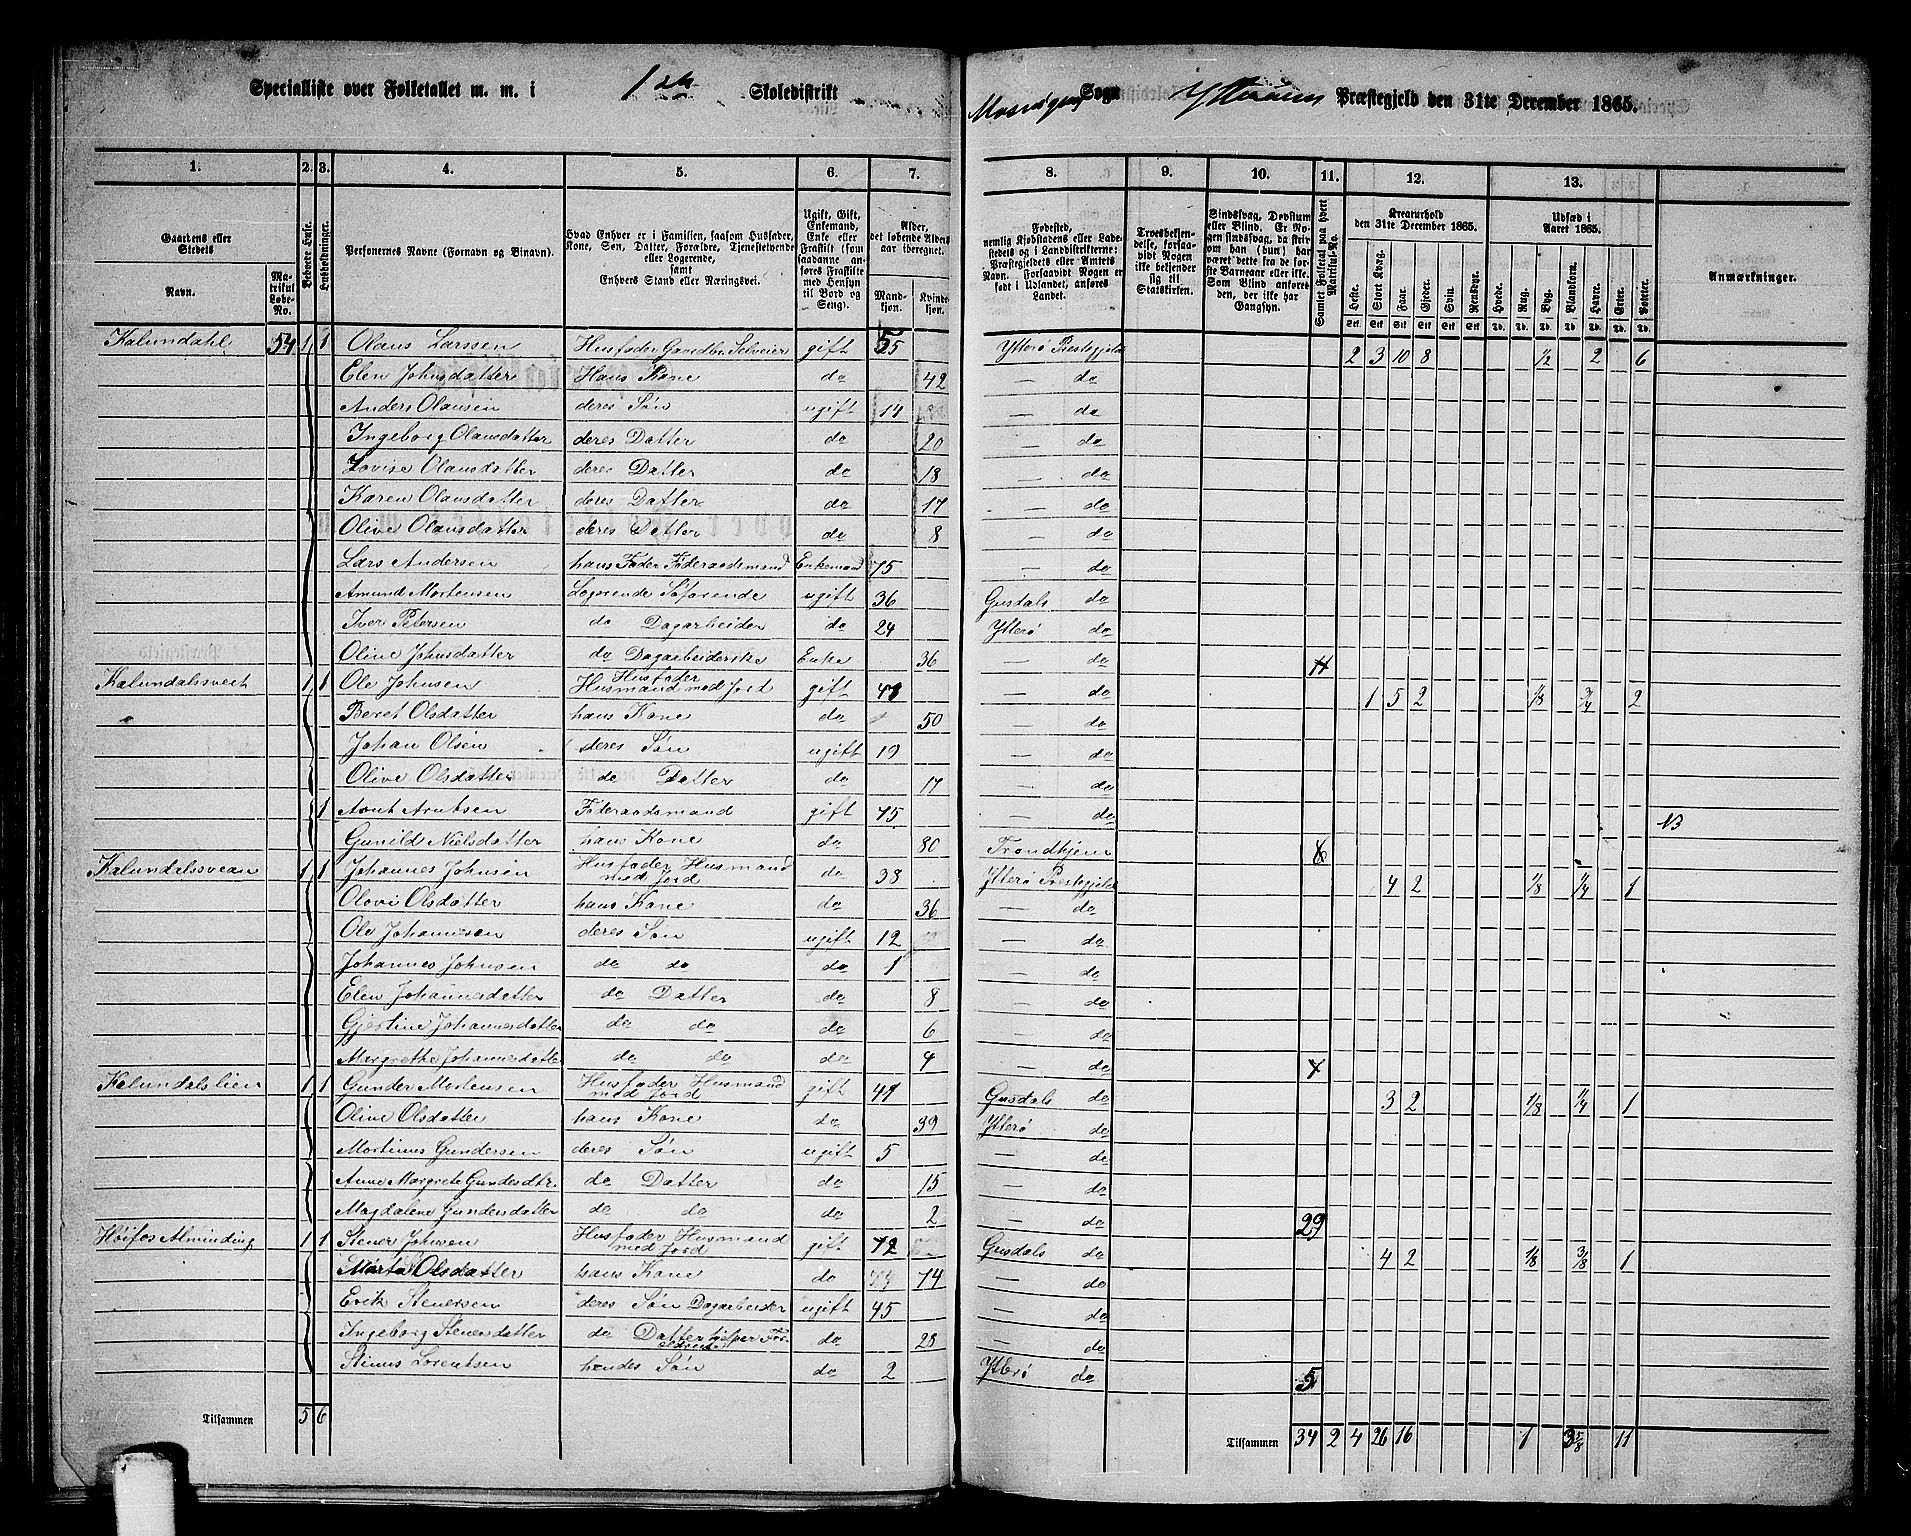 Specialliste over Folketallet m. m. i 1ste Skoledistrikt Mosvigens Sogn Ytterøens Præstegjeld den 31te December 1865.
1. 2. 3. 4. 5. 6. 7. 8. 9. 10. 11. 12. 13.
Gaardens eller Stedets
Navn. Matrikul Løbe-No.
Beboede Huse.
Husholdninger.
Personernes Navne (Fornavn og Binavn).
Hvad Enhver er i Familien, saasom Husfader, Kone, Søn, Datter, Forældre, Tjenestetyende eller Logerende, samt Enhvers Stand eller Næringsvei.
Ugift, Gift, Enkemand, Enke eller Fraskilt (som saadanne anføres Fraskilte med Hensyn til Bord og Seng).
Alder, det løbende Aldersaar iberegnet.
Mandkjøn. Kvindekjøn.
Fødested, nemlig Kjøbstadens eller Ladestedets og i Landdistrikterne: Præstegjeldets eller Amtets Navn. Forsaavidt Nogen er født i Udlandet, anføres Landet.
Troesbekjendelse, forsaavidt Nogen ikke bekjender sig til Statskirken.
Sindssvag, Døvstum eller Blind. Er Nogen sindssvag, da skrives om han (hun) har været dette fra de første Barneaar eller ikke. Som Blind anføres den, der ikke har Gangsyn.
Samlet Folketal paa hvert Matrikul-No.
Kreaturhold den 31te December 1865.
Heste. Stort Kvæg. Faar. Gjeder. Svin. Rensdyr.
Udsæd i Aaret 1865.
Hvede. Rug. Byg. Blandkorn. Havre. Erter. Poteter.
Anmærkninger.
Kalundahl 54 1 1 Olaus Larssen Husfader Gaardbr. Selveier gift 55 Ytterø Prestegjeld 2 3 10 8 1/2 2 6
Elen Johnsdatter Hans Kone do 42 — do
Anders Olaussen deres Søn ugift 14 — do
Ingeborg Olausdatter deres Datter do 20 — do
Lovise Olausdatter deres Datter do 18 — do
Karen Olausdatter deres Datter do 17 — do
Olive Olausdatter deres Datter do 8 — do
Lars Andersen hans Fader Føderaadsmand Enkemand 75 — do
Amund Mortensen Logerende Søfarende ugift 36 Gusdals do
Iver Petersen do Dagarbeider do 24 Ytterø do
Oline Johnsdatter do Dagarbeiderske Enke 36 — do 11
Kalundalssveet 1 1 Ole Johnsen Husfader Husmand med Jord gift 41 — do 1 5 2 1/8 3/4 2
Beret Olsdatter hans Kone do 50 — do
Johan Olsen deres Søn ugift 19 — do
Olive Olsdatter do Datter do 17 — do
1 Arnt Arntsen Føderaadsmand gift 75 — do NB
Gunild Nielsdatter hans Kone do 80 Trondhjem 6
Kalundalssvean 1 1 Johannes Johnsen Husfader Husmand med Jord do 38 Ytterø Prestegjeld 4 2 1/8 1/4 1
Olovi Olsdatter hans Kone do 36 — do
Ole Johannesen deres Søn ugift 12 — do
Johannes Johnsen do do do 1 — do
Elen Johannesdatter do Datter do 8 — do
Gjertine Johannesdatter do do do 6 — do
Margrethe Johannesdatter do do do 4 — do 7
Kalundalslien 1 1 Gunder Mortensen Husfader Husmand med Jord gift 41 Gusdals do 3 2 1/8 1/4 1
Olive Olsdatter hans Kone do 39 Ytterø do
Mortinus Gundersen deres Søn ugift 5 — do
Anne Margrete Gundersdtr. do Datter do 15 — do
Magdalene Gundersdatter do do do 2 — do 29
Høifos Alminding 1 1 Stener Johnsen Husfader Husmand med Jord gift 72 Gusdals do 4 2 1/8 3/8 1
Marta Olsdatter hans Kone do 74 — do
Erik Stenersen deres Søn Dagarbeider ugift 45 — do
Ingeborg Stenersdatter do Datter hjelper Forældrene do 28 — do
Stinus Lorentsen hendes Søn do 2 Ytterø do 5
Tilsammen 5 6 Tilsammen 34 2 4 26 16 1 3 5/8 11